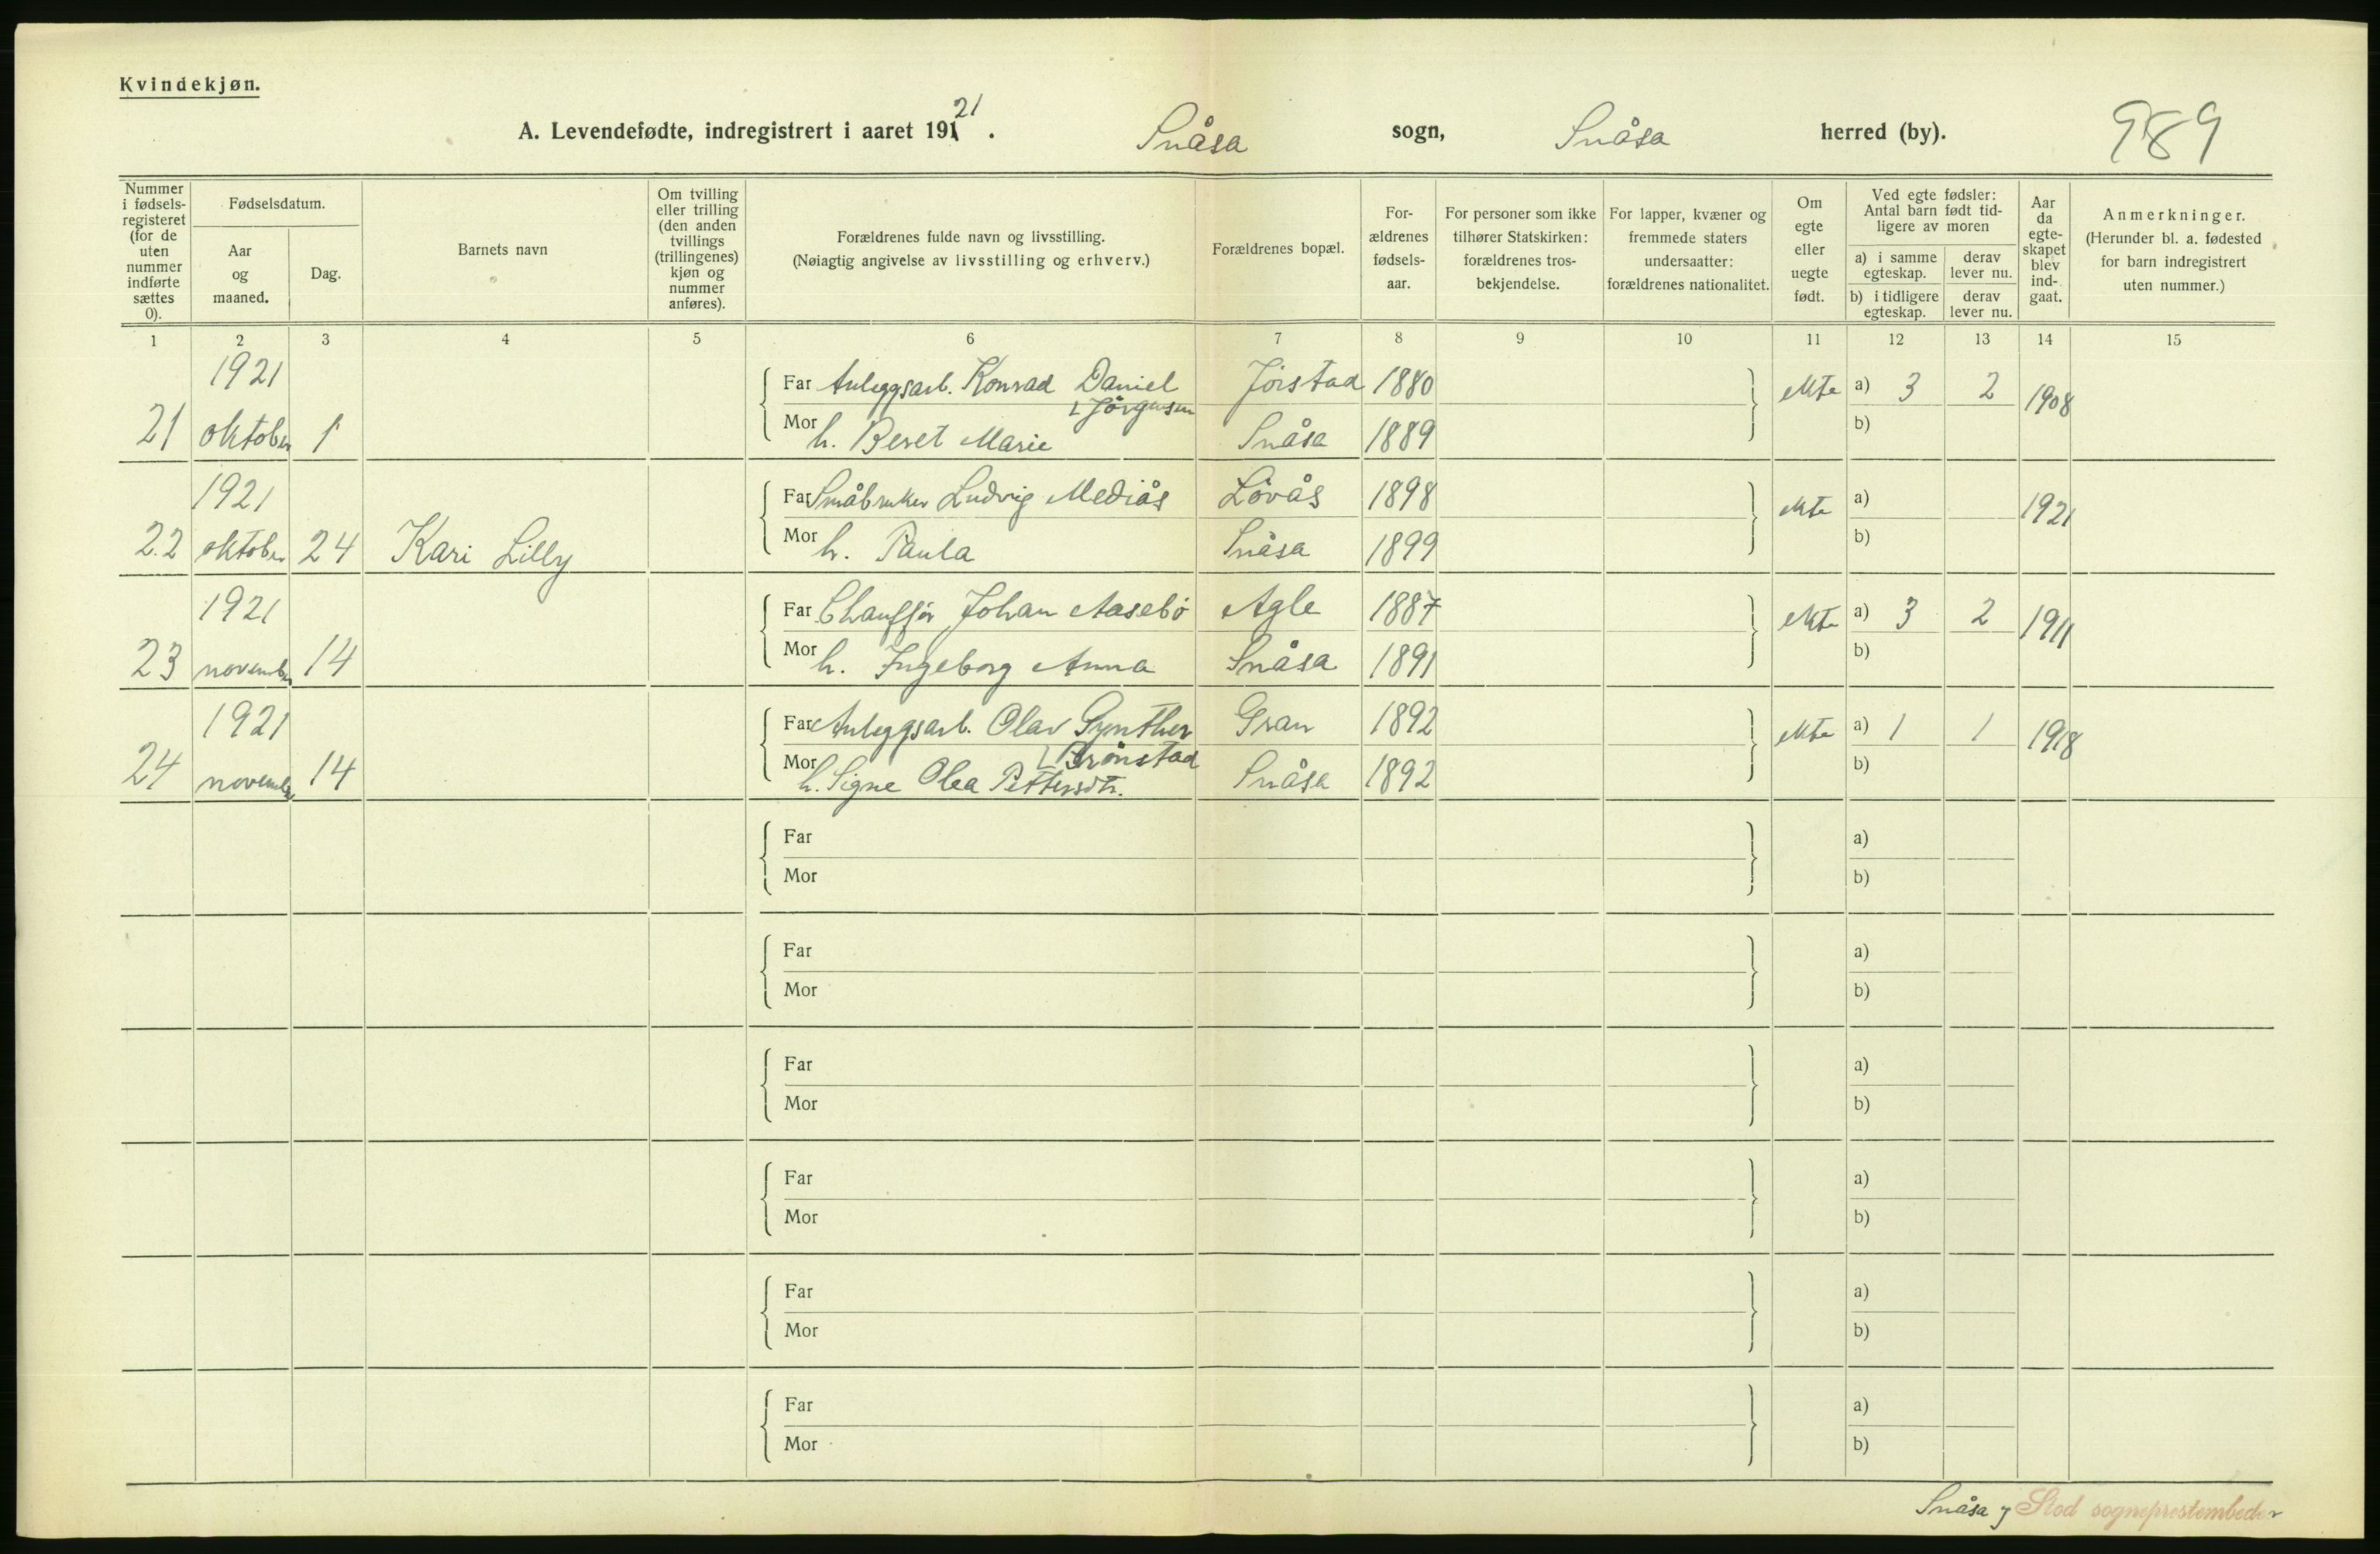 Kvindekjøn.
A. Levendefødte, indregistrert i aaret 1921. Snåsa sogn, Snåsa herred (by). 989
Nummer i fødsels-registeret (for de uten nummer indførte sættes 0).
Fødselsdatum.
Aar og maaned.
Dag.
Barnets navn
Om tvilling eller trilling (den anden tvillings (trillingenes) kjøn og nummer anføres).
Forældrenes fulde navn og livsstilling.
(Nøiagtig angivelse av livsstilling og erhverv.)
Forældrenes bopæl.
For-ældrenes fødsels-aar.
For personer som ikke tilhører Statskirken: forældrenes tros-bekjendelse.
For lapper, kvæner og fremmede staters undersaatter: forældrenes nationalitet.
Om egte eller uegte født.
Ved egte fødsler: Antal barn født tid-ligere av moren
a) i samme egteskap.
derav lever nu.
b) i tidligere egteskap.
derav lever nu.
Aar da egte-skapet blev ind-gaat.
Anmerkninger.
(Herunder bl. a. fødested for barn indregistrert uten nummer.)
1 2 3 4 5 6 7 8 9 10 11 12 13 14 15
1921 Far Anleggsarb. Konrad Daniel Jörgensen Jörstad 1880 ekte a) 3 2 1908
21 oktober 1 Mor h. Beret Marie Snåsa 1889 b)
1921 Far Småbruker Ludvig Mediås Lövås 1898 ekte a) 1921
22 oktober 24 Kari Lilly Mor h. Paula Snåsa 1899 b)
1921 Far Chaufför Johan Aasebö Agle 1887 ekte a) 3 2 1911
23 november 14 Mor h. Ingeborg Anna Snåsa 1891 b)
1921 Far Anleggsarb. Olav Gynther Brönstad Gran 1892 ekte a) 1 1 1918
24 november 14 Mor h. Signe Olea Pettersdtr. Snåsa 1892 b)
Far a)
Mor b)
Far a)
Mor b)
Far a)
Mor b)
Far a)
Mor b)
Far a)
Mor b)
Far a)
Mor b)
Snåsa Stod sogneprestembeder